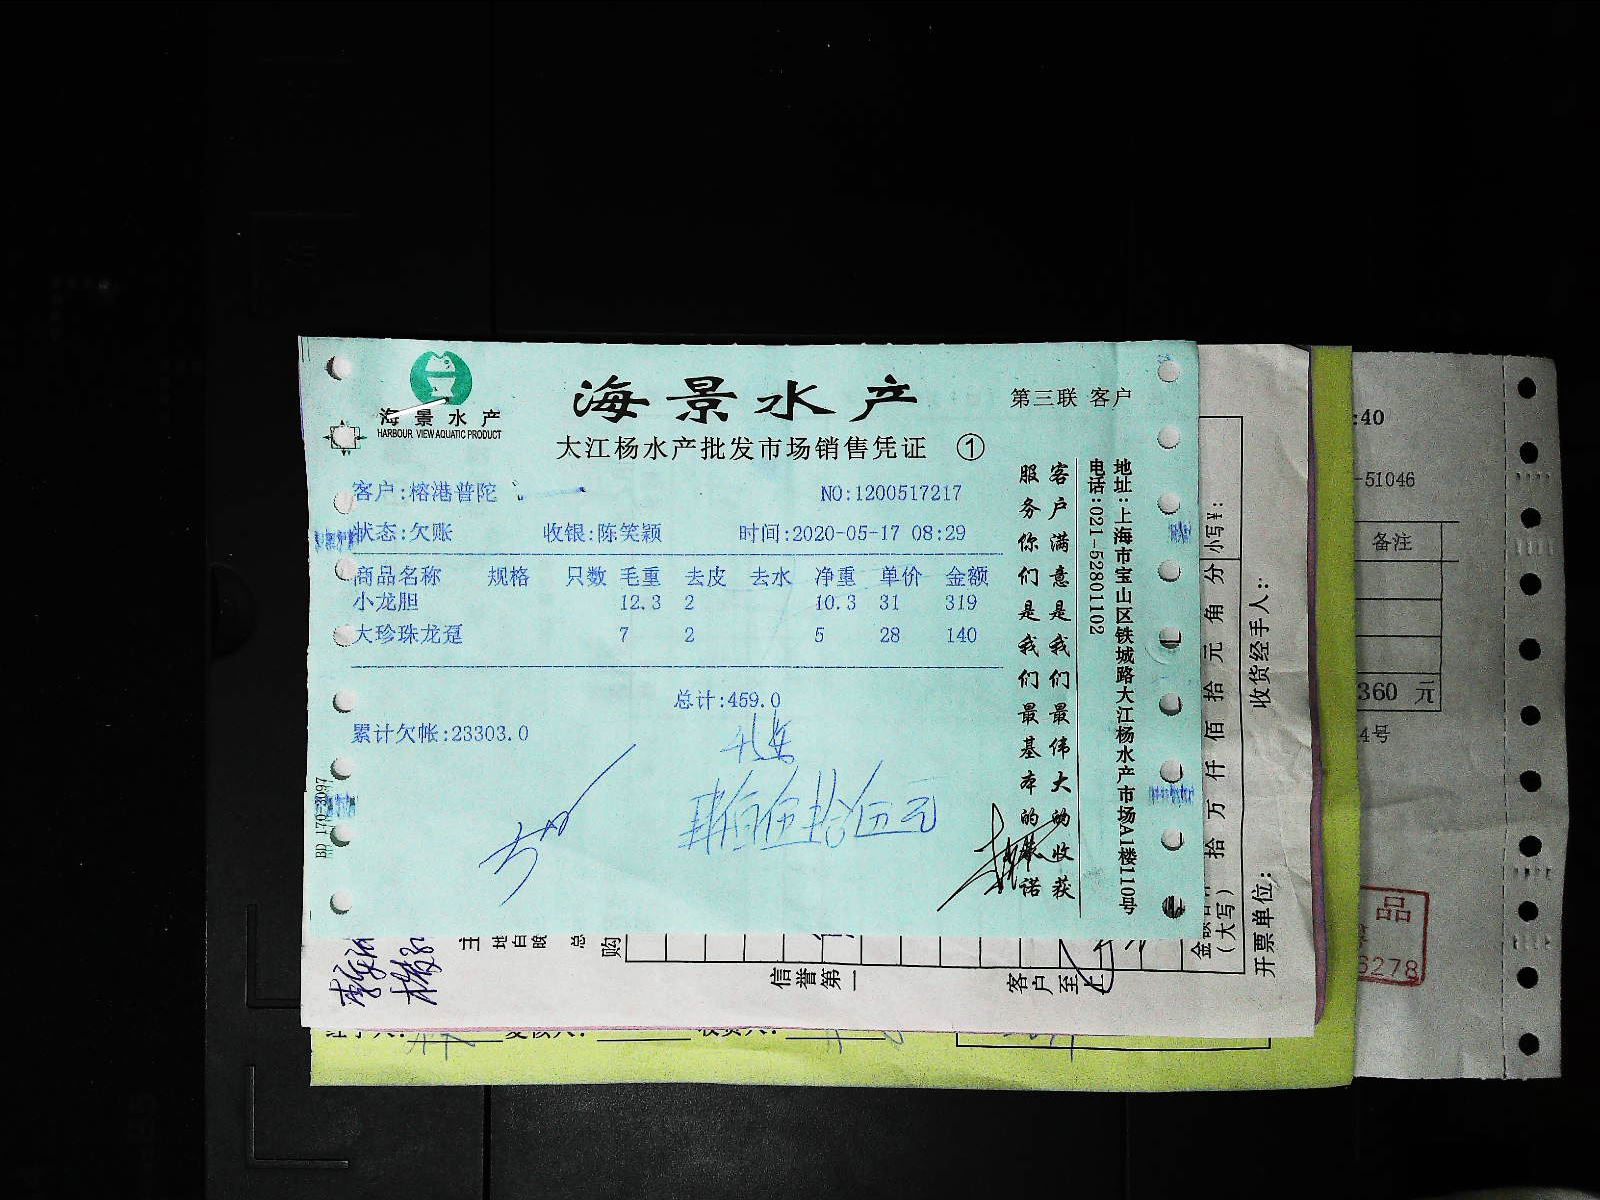 海景水产
HARBOUR VIEW AQUATIC PRODUCT
海景水产
第三联 客户
大江杨水产批发市场销售凭证 ①
客户:榕港普陀
NO:1200517217
状态:欠账 收银:陈笑颖 时间:2020-05-17 08:29
商品名称 规格 只数 毛重 去皮 去水 净重 单价 金额
小龙胆 12.3 2 10.3 31 319
大珍珠龙趸 7 2 5 28 140
总计:459.0
累计欠帐:23303.0
肆佰伍拾伍元
客户满意是我们最伟大的收获
服务你们是我们最基本的承诺
地址:上海市宝山区铁城路大江杨水产市场A1楼110号
电话:021-52801102
BD 170-3097
小写¥:
拾万仟佰拾元角分
(大写)
收货经手人:
开票单位:
购
总
信誉第一
客户至上
:40
-51046
备注
360 元
4号
品
6278